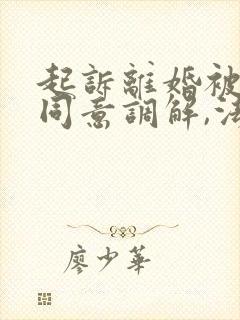 起訴離婚被
同意調解,法
廖少華